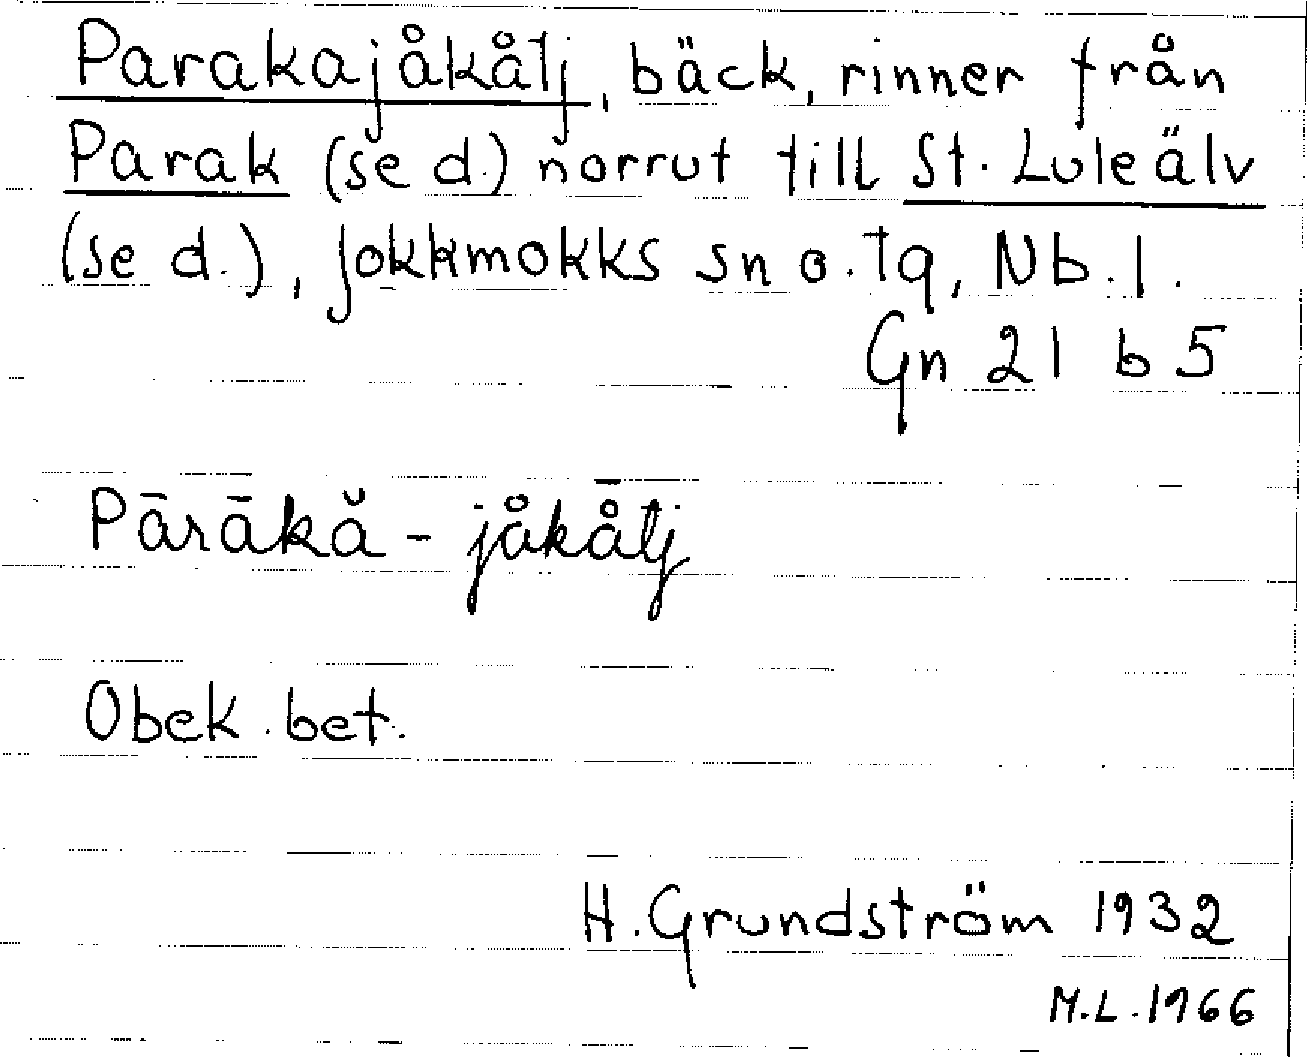 Parakajåkålj, bäck, rinner från
Parak (se d.) norrut till St. Luleälv
(se d.), Jokkmokks sn o. tg, Nb. l.
Gn 21 b 5
Pārākă - jåkå̄lj
Obek. bet.
H. Grundström 1932
M.L. 1966